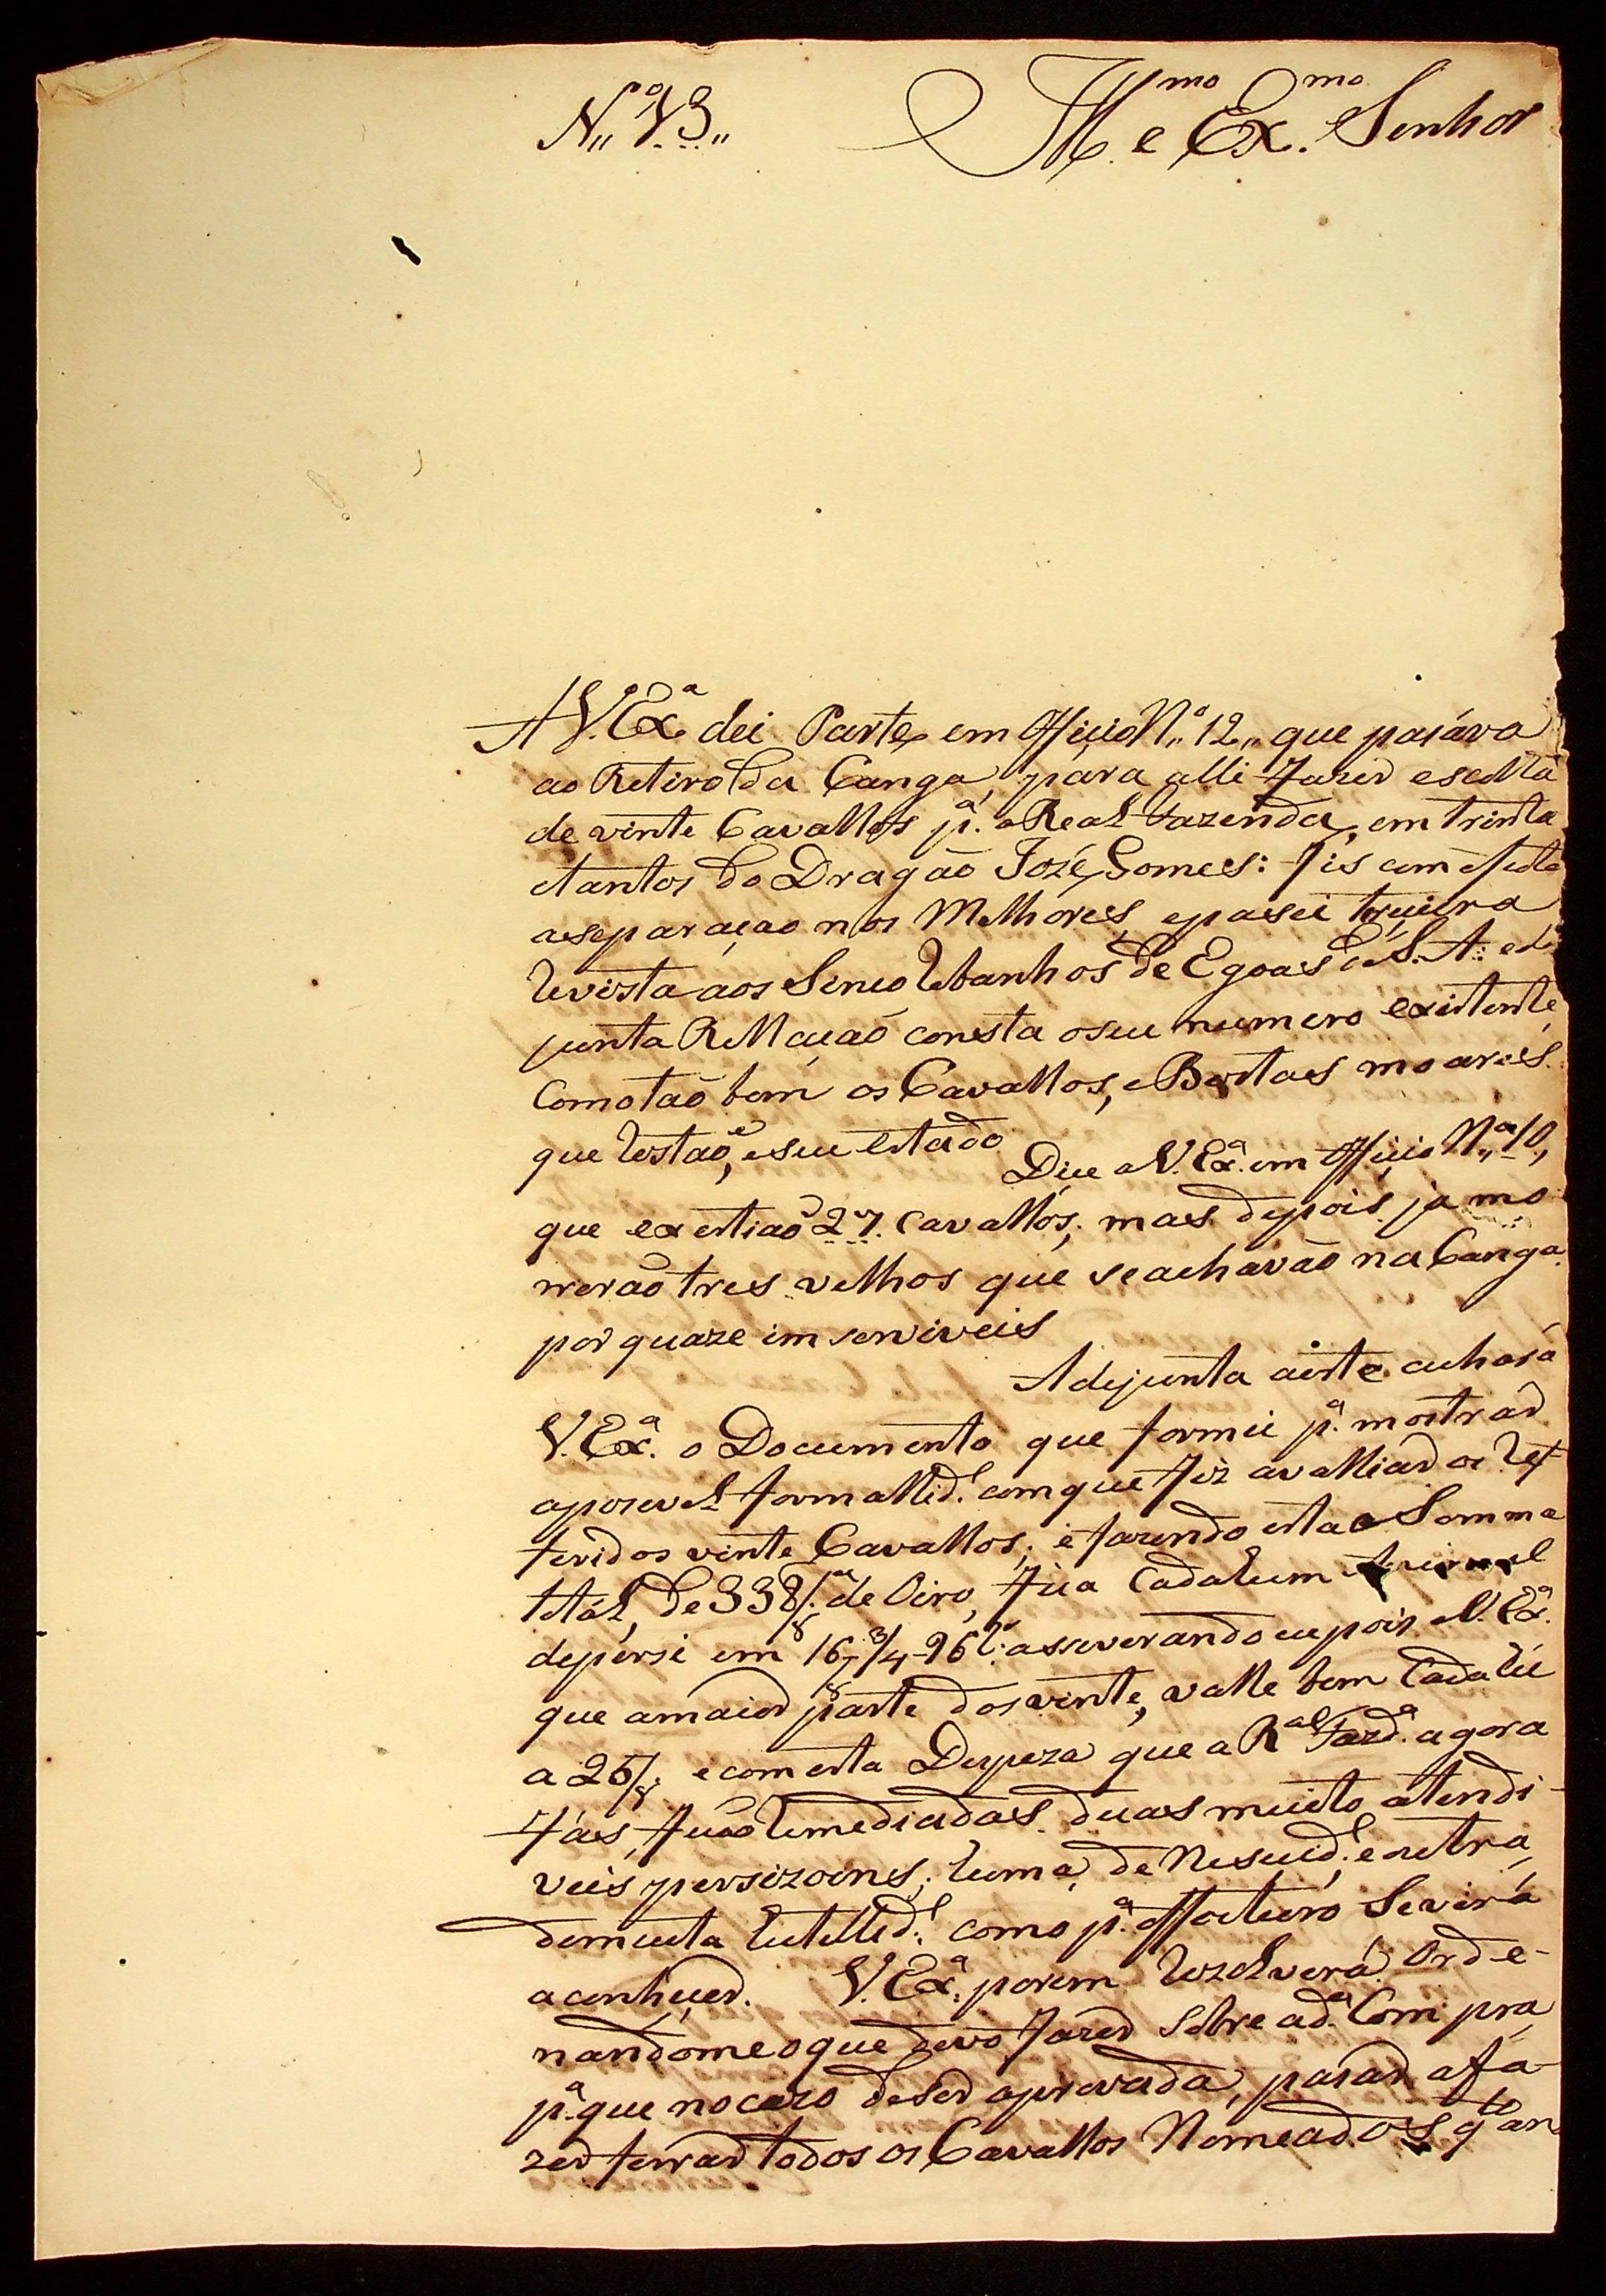 N.º 13
Ill.mo e Ex.mo Senhor
A V. Ex.ª dei Parte em Officio N.º 12,, que pasáva
ao Retiro da Canga, para alli fazer escolta
de vinte Cavallos p.ª a Real Fazenda, em trinta
etantos do Dragaõ Jozé Gomes: fis com efeito
aseparaçaõ nos Melhores, epasei terceira
revista aos Sinco Rebanhos de Egoas de S. A. e da
junta Rellaçaõ consta oseu numero existente,
Como taõ bem os Cavallos, e Bestas moares
que restaõ, e seu estado
Dice a V. Ex.ª em Officio N.º 10,
que existiaõ 27. Cavallos; mas depois ja mo-
rreraõ tres velhos que seachavaõ na Canga
por quaze imserviveis
Adejunta a este achará
V. Ex.ª o Documento que formei p.ª mostrar
aposivel formallid.e comque fiz avalliar os re-
feridos vinte Cavallos; e fazendo esta a Somma
totál, de 338/8.ª de Oiro, fica Cadahum
depersi em 16/8 3/4 - 96 r.s aseverando eu pois a V. Ex.ª
que amaior parte dosvinte, valle bem Cada hũ
a 26/8. ecom esta Despeza que a R.al Fazd.ª agora
fás, ficaõ remediadas duas muito atendi-
veis persizoens; huma de Nesecid.e e outra
demuita Utellid.e como p.ª ofoturo Sevirá
aconhecer. V. Ex.ª porem rezolverá Orde-
nandome oque devo fazer Sobre ad.ª Compra
p.ª que nocazo deser aprovada, pasar afa-
zer ferrar todos os Cavallos Nomeados q.to an